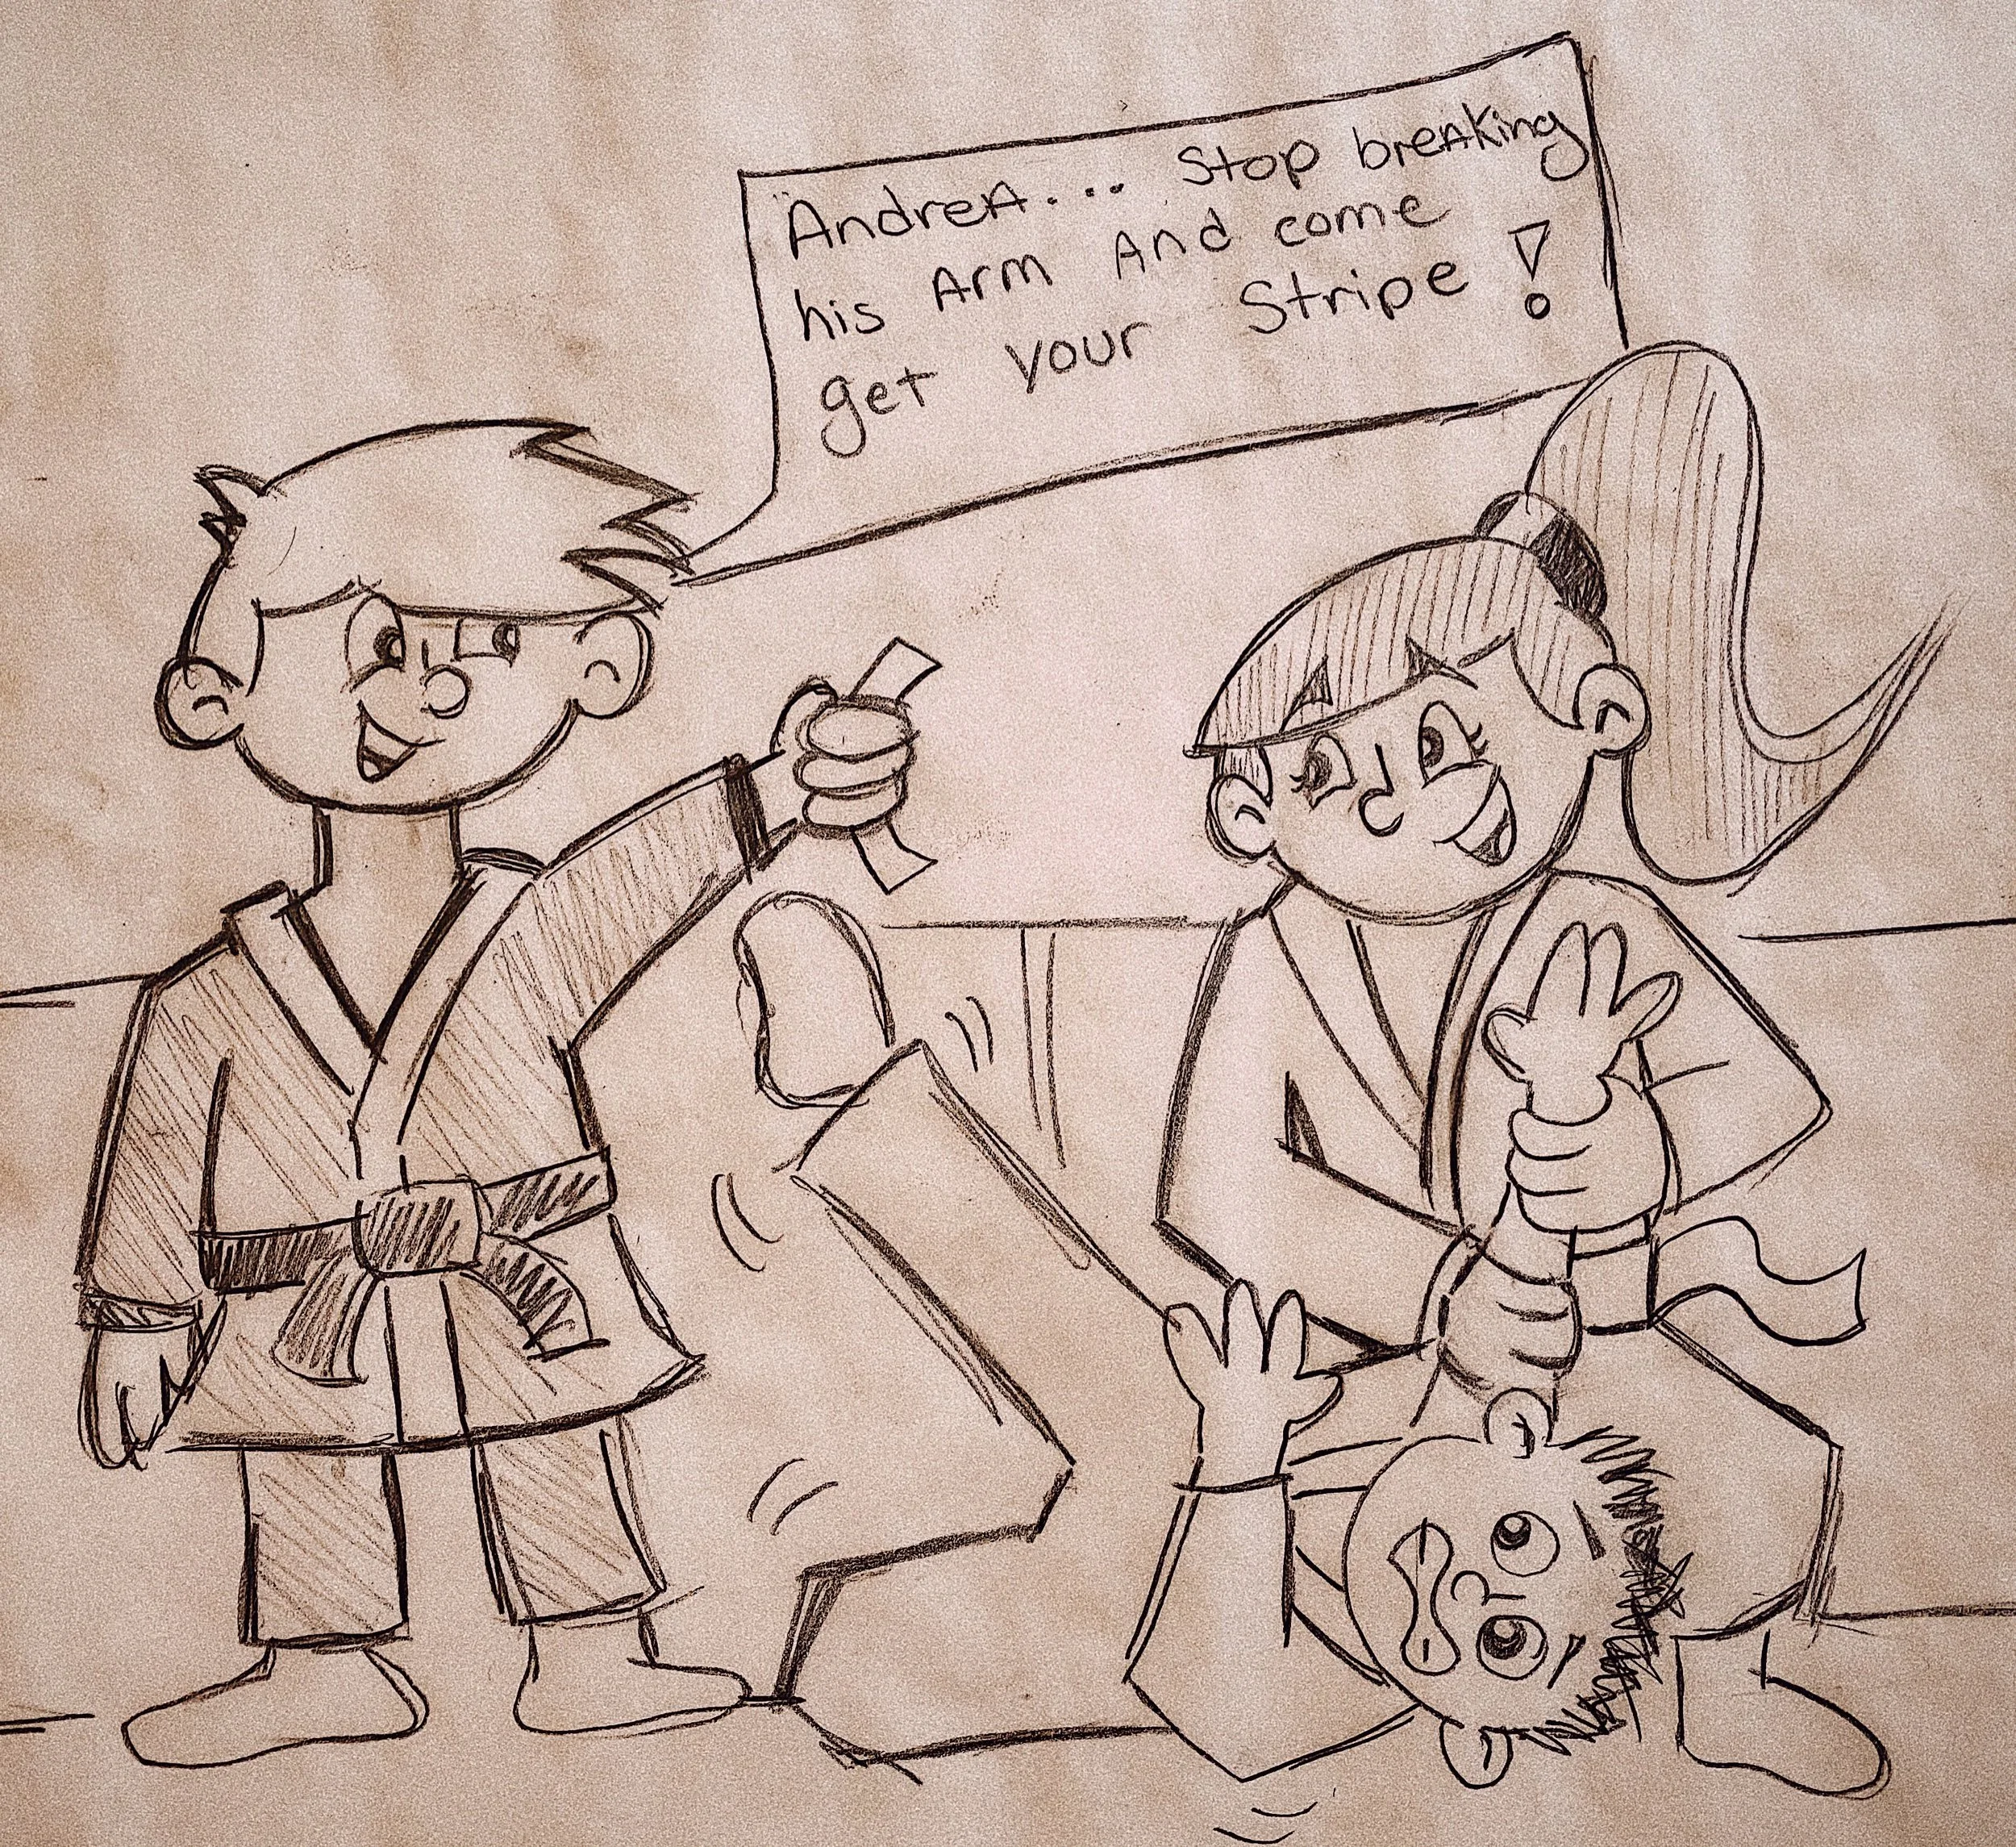 Andrea.... Stop breaking
his Arm And come
get your Stripe!